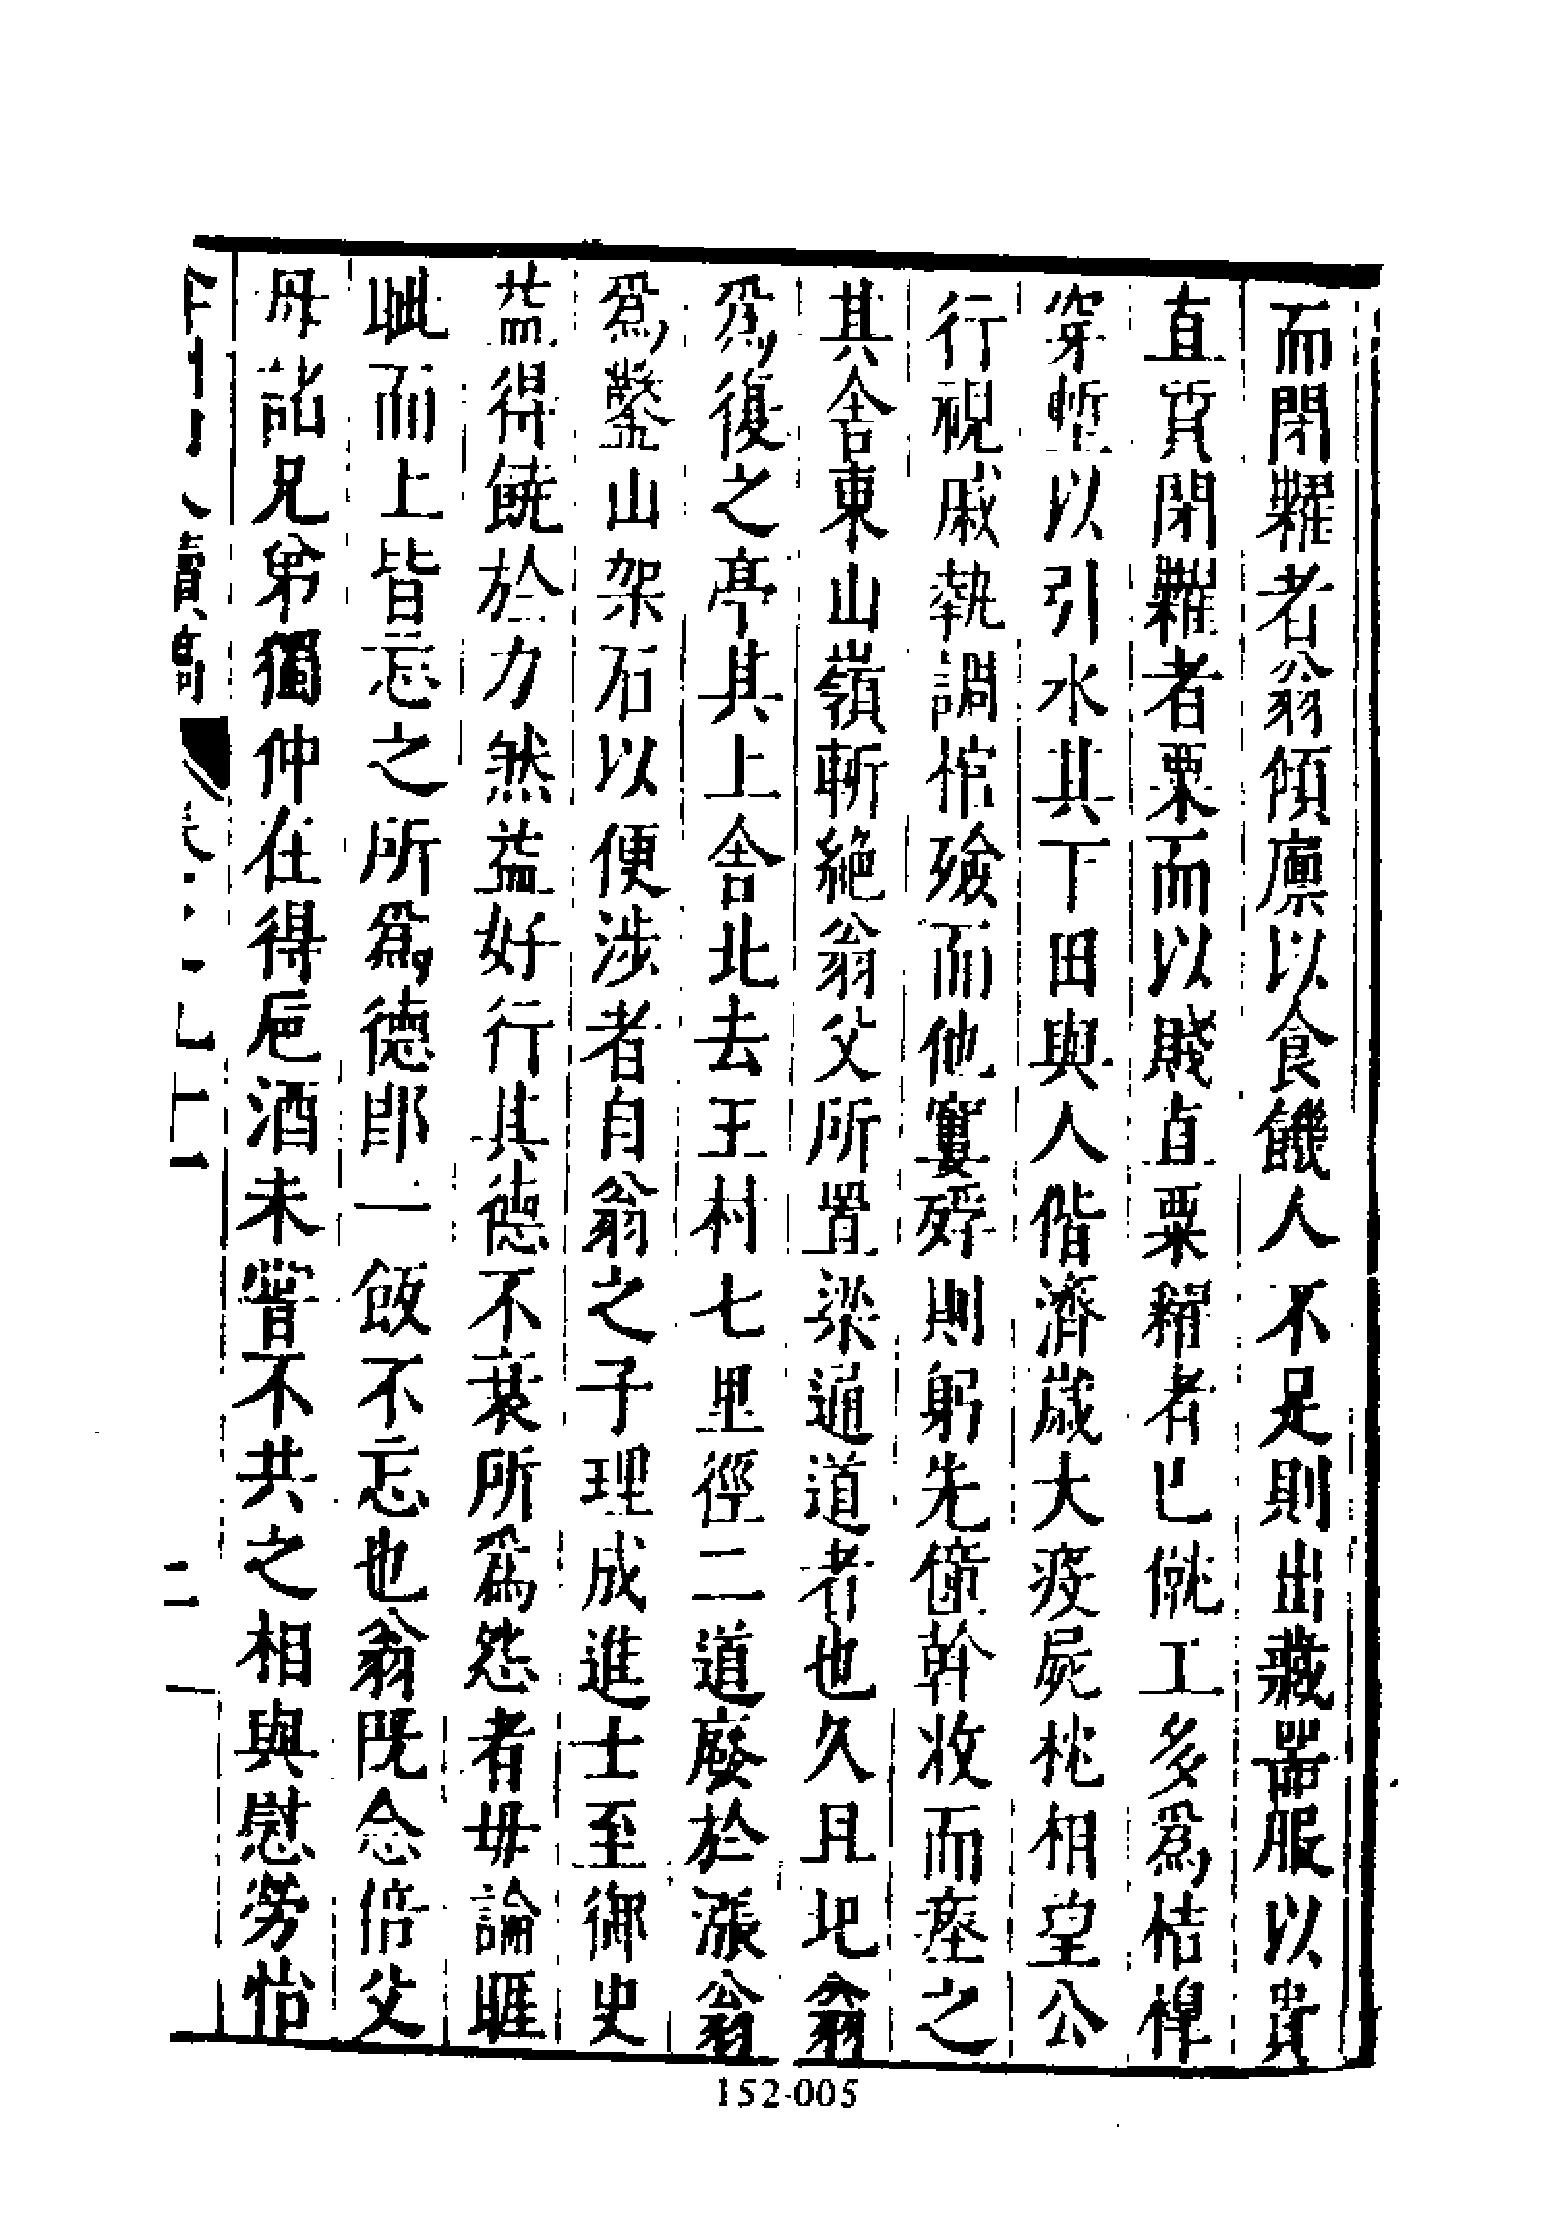 而閉糶者翁傾廪以食饑人不足則出藏器服以貴
直質閉糶者粟而以賤直粟糴者已僦工多爲桔橰
穿塹以引水其下田與人偕濟歲大疫屍枕相望公
行視戚執調棺殮而他窶殍則躬先僮幹收而瘞之
其舍東山嶺斬絶翁父所置梁通道者也久且圯翁
爲復之亭其上舍北去王村七里徑二道廢於漲翁
爲鑿山架石以便渉者自翁之子理成進士至御史
益得饒於力然益好行其德不衰所爲怨者毋論睚
眦而上皆忘之所爲德郎一飯不忘也翁既念倍父
母詒兄弟獨仲在得巵酒未甞不共之相與慰勞怡
弇州山人續稿 卷之九十一
二
152-005